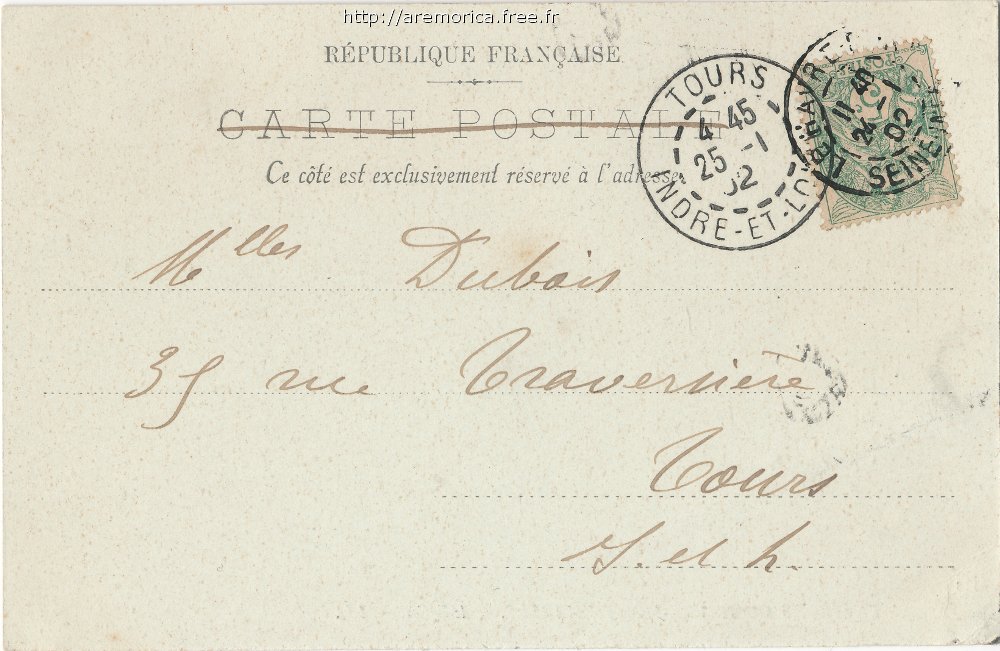 http://aremorica.free.fr
RÉPUBLIQUE FRANÇAISE
CARTE POSTALE
Ce côté est exclusivement réservé à l'adresse
TOURS
4 45
25 -1
02
INDRE-ET-LOIRE
LE HAVRE
11 45
24 -1
02
SEINE INF
Mlles Dubois
35 rue Traversière
Tours
I. et L.